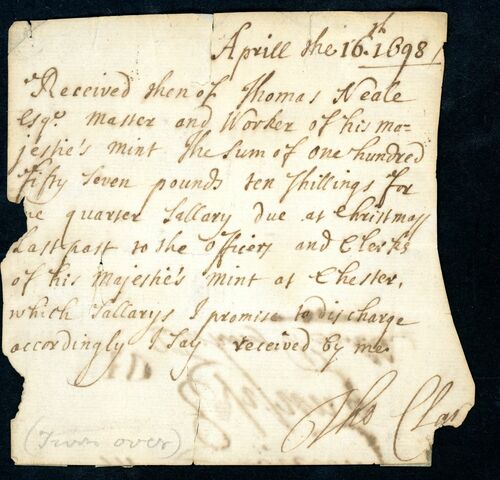 Aprill the 16.th 1698
Received then of Thomas Neale
Esqr. Master and Worker of his ma=
jestie's mint the Sum of one hundred
fifty Seven pounds ten shillings for
he quarter Sallary due at Christmass
Last past to the officers and Clerks
of his Majestie's mint at Chester,
which Sallarys I promise to discharge
accordingly I Say received by me.
Tho Clar
(Turn over)